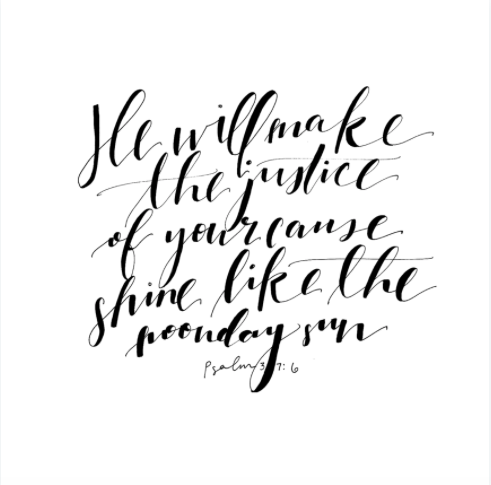 He will make
the justice
of your cause
shine like the
noonday sun
Psalm 37:6